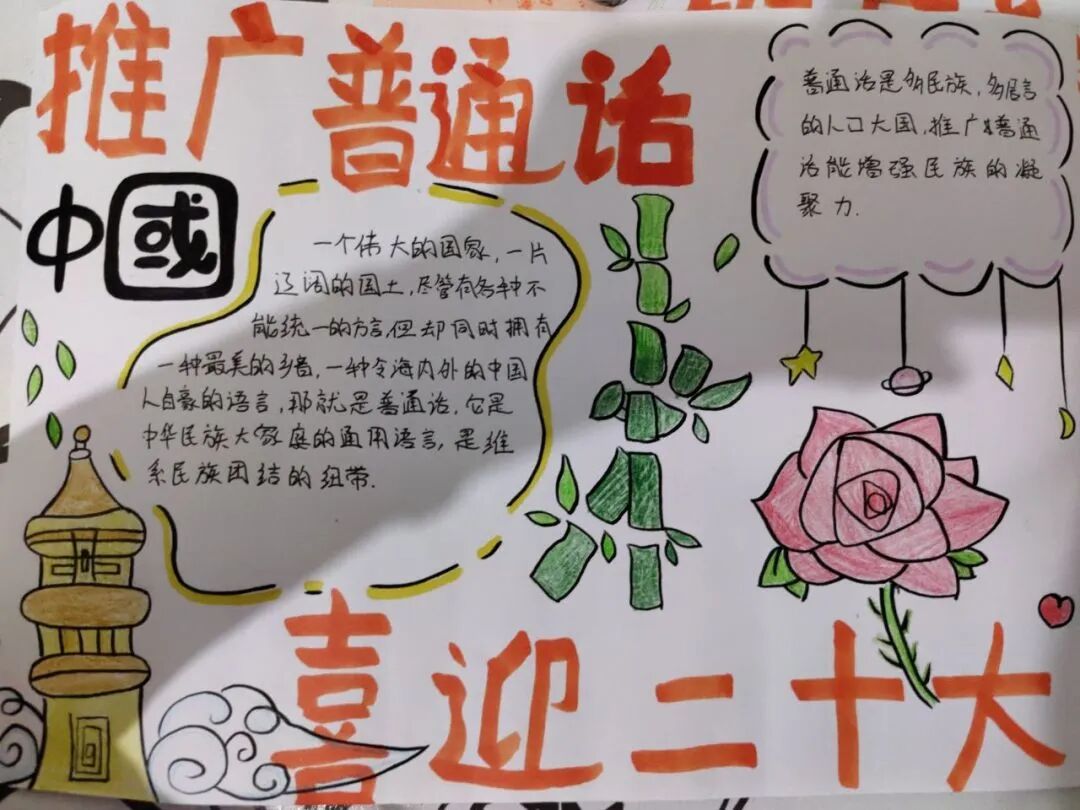 推广普通话
中國
一个伟大的国家，一片
辽阔的国土，尽管有各种不
能统一的方言，但却同时拥有
一种最美的乡音，一种令海内外的中国
人自豪的语言，那就是普通话，它是
中华民族大家庭的通用语言，是维
系民族团结的纽带.
普通话是多民族，多语言
的人口大国，推广普通
话能增强民族的凝
聚力.
喜迎二十大